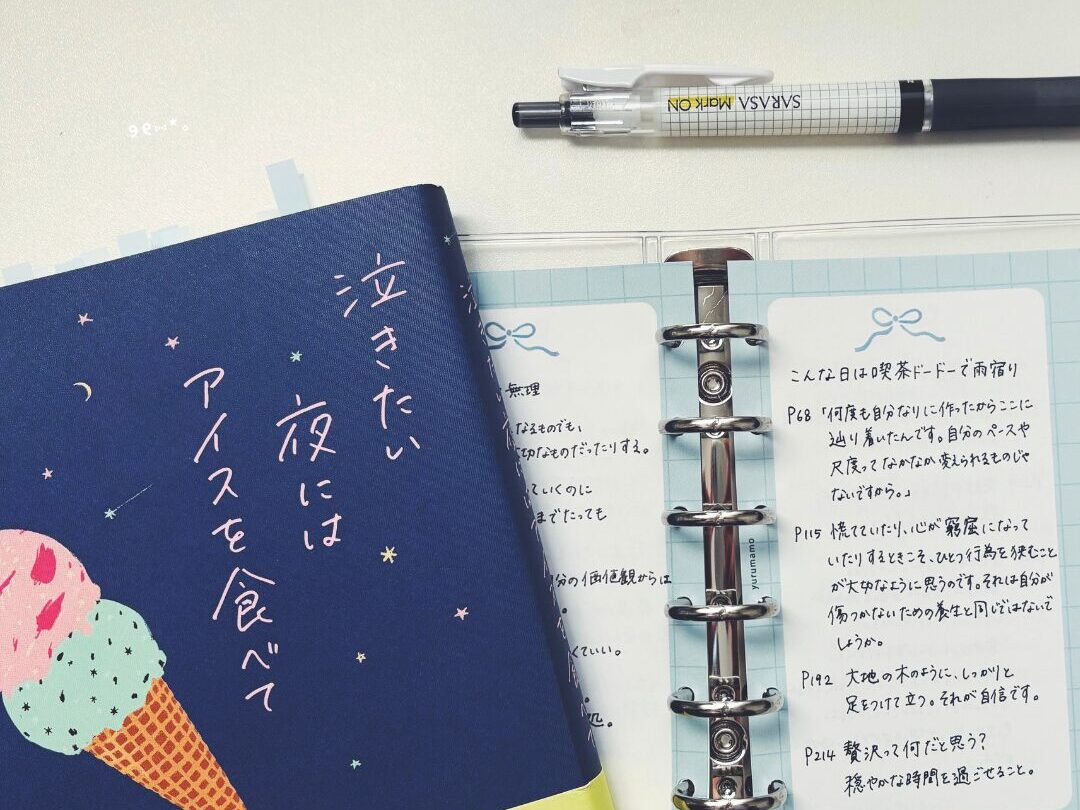 SARASA Mark ON
泣きたい
夜には
アイスを食べて
無理
なるものでも、
切なものだったりする。
ていくのに
までたっても
分の価値観からは
くていい。
yurumamo
こんな日は喫茶ドードーで雨宿り
P68「何度も自分なりに作ったからここに
辿り着いたんです。自分のペースや
尺度ってなかなか変えられるものじゃ
ないですから。」
P115 慌てていたり、心が窮屈になって
いたりするときこそ、ひとつ行為を挟むこと
が大切なように思うのです。それは自分が
傷つかないための養生と同じではないで
しょうか。
P192 大地の木のように、しっかりと
足をつけて立つ。それが自信です。
P214 贅沢って何だと思う?
穏やかな時間を過ごせること。